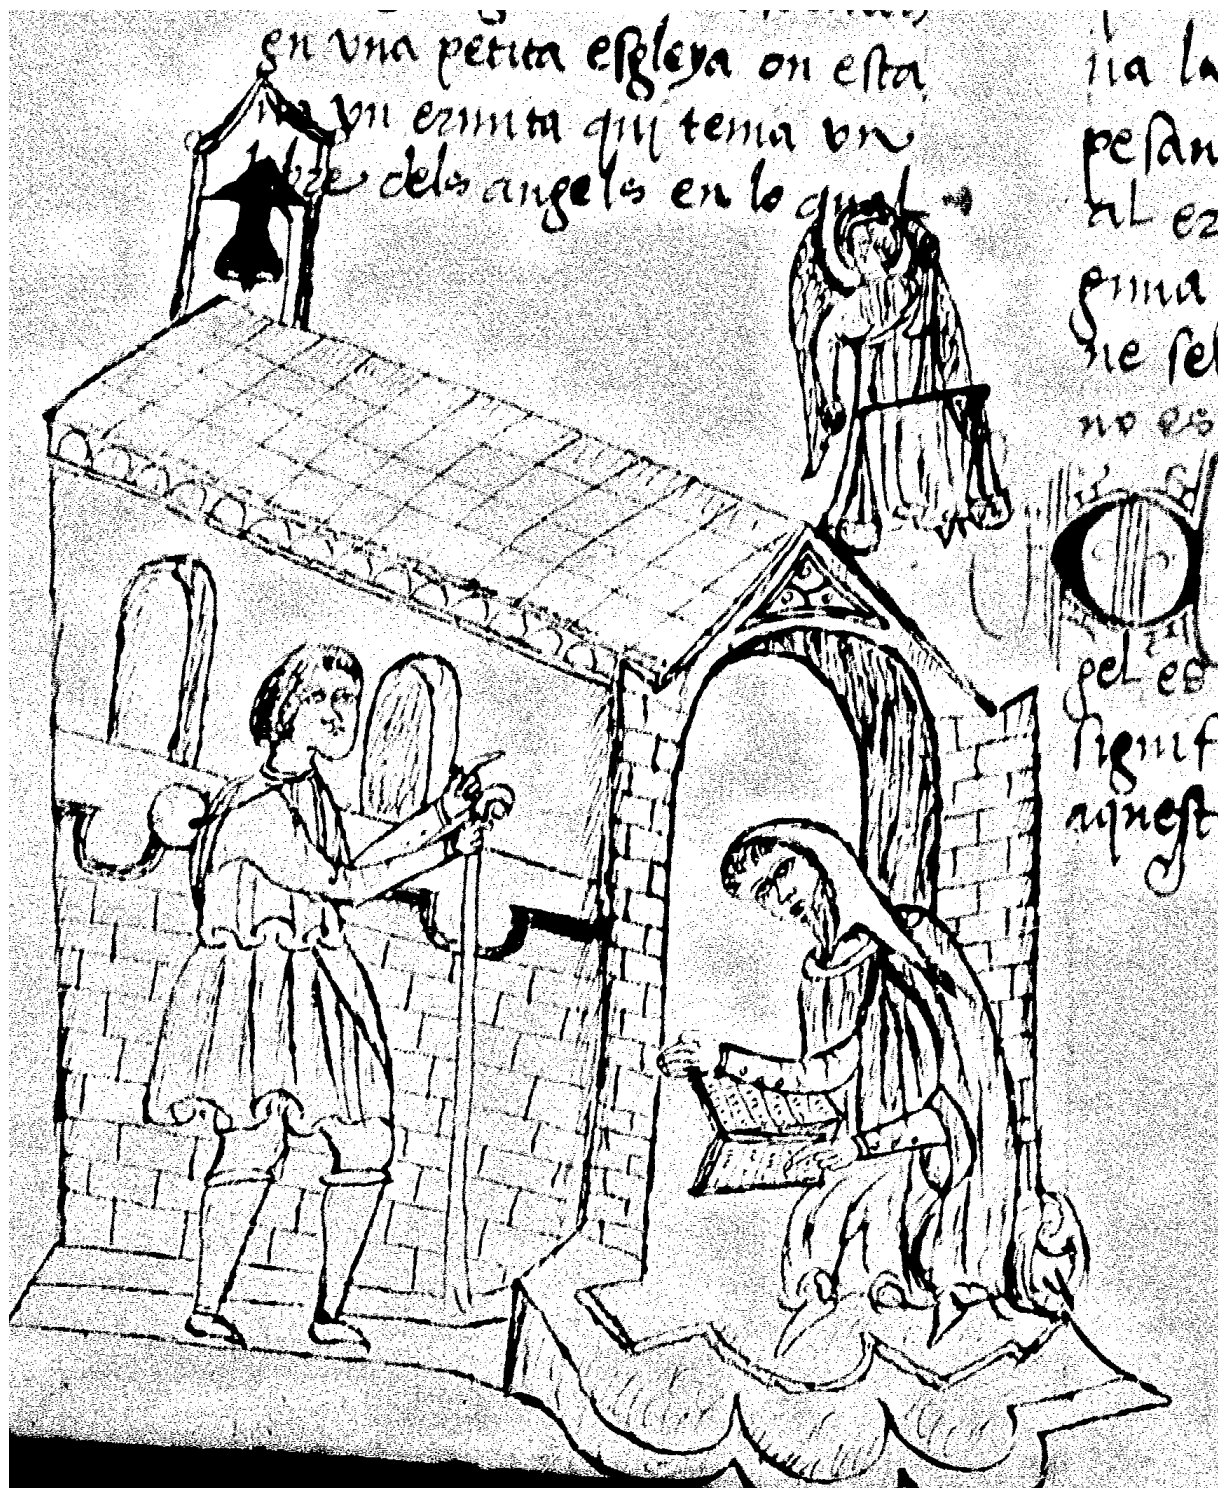 en vna petita esgleya on esta
ua vn ermita qui tenia vn
libre dels angels en lo qual
na la
pesan
al er
ne sel
no es
gel es
signif
aquest